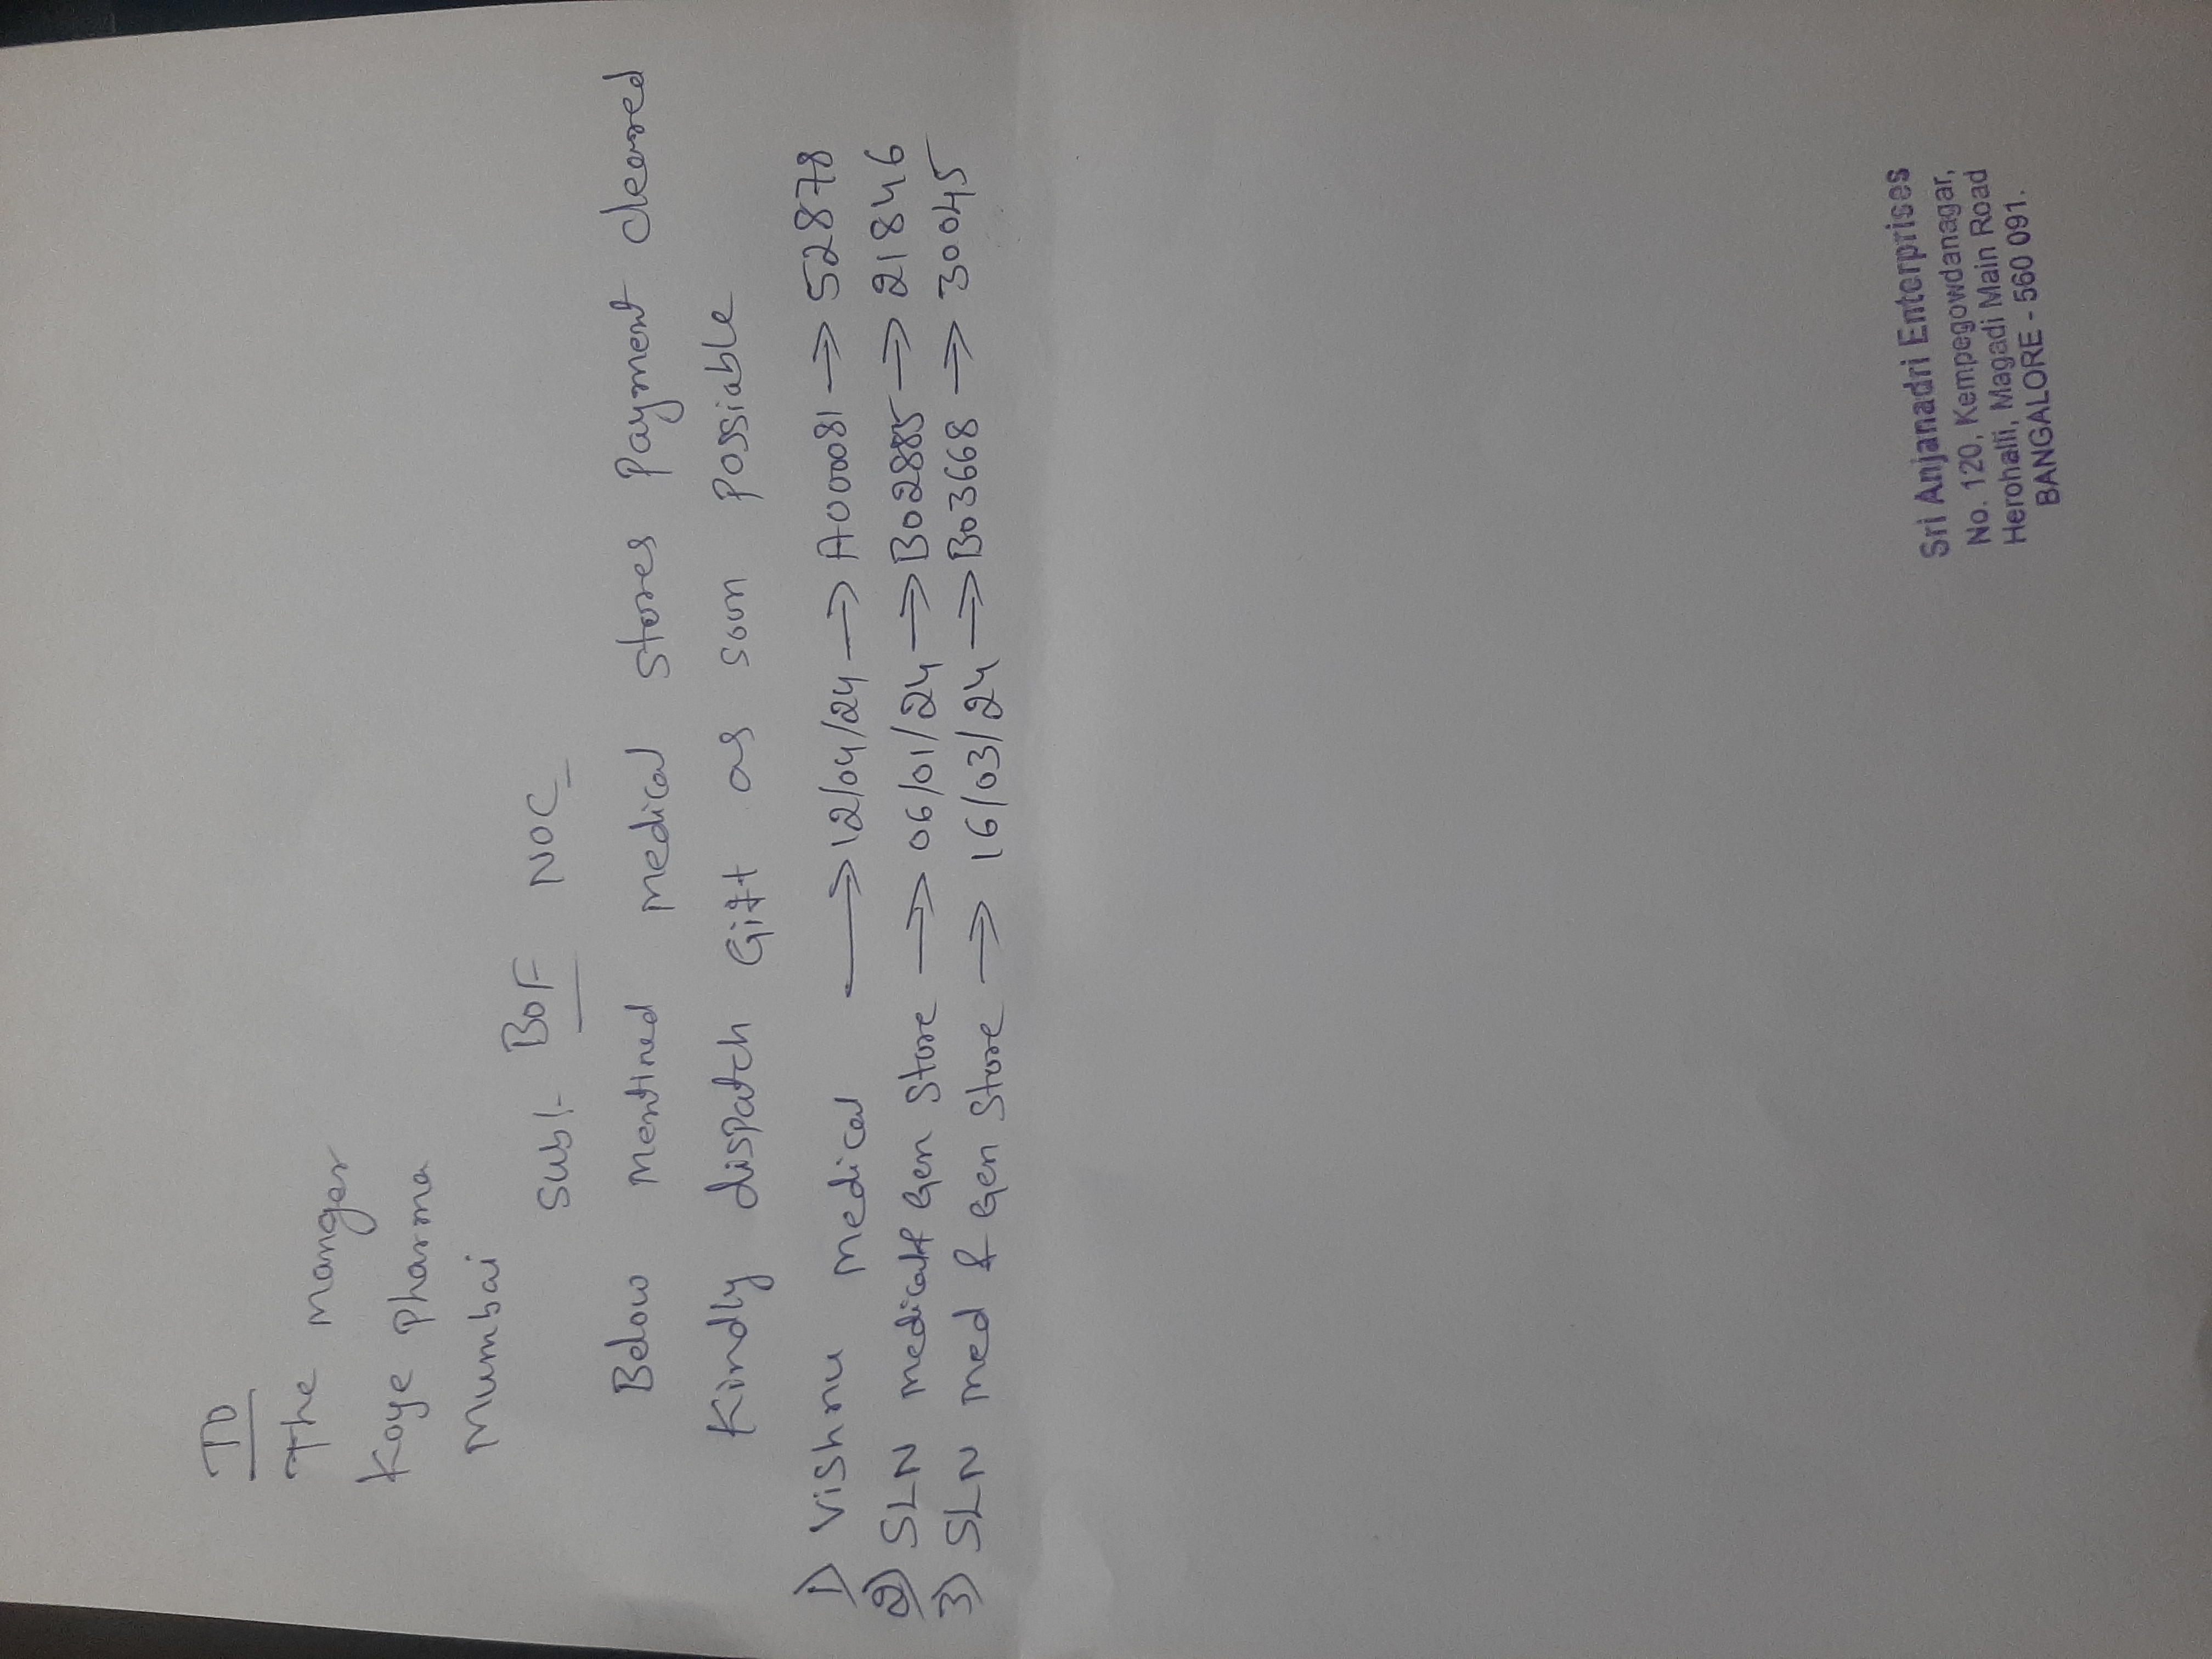 To
The manger
Koye Pharma
Mumbai
Sub:- BOF NOC
Below mentined medical stores Payment cleared
Kindly dispatch Gift as soon Possiable
1) Vishnu medical → 12/04/24 → A000081 → 52878
2) SLN medical & Gen Store → 06/01/24 → B02885 → 21846
3) SLN med & Gen Store → 16/03/24 → B03668 → 30045
Sri Anjanadri Enterprises
No. 120, Kempegowdanagar,
Herohalli, Magadi Main Road
BANGALORE - 560 091.